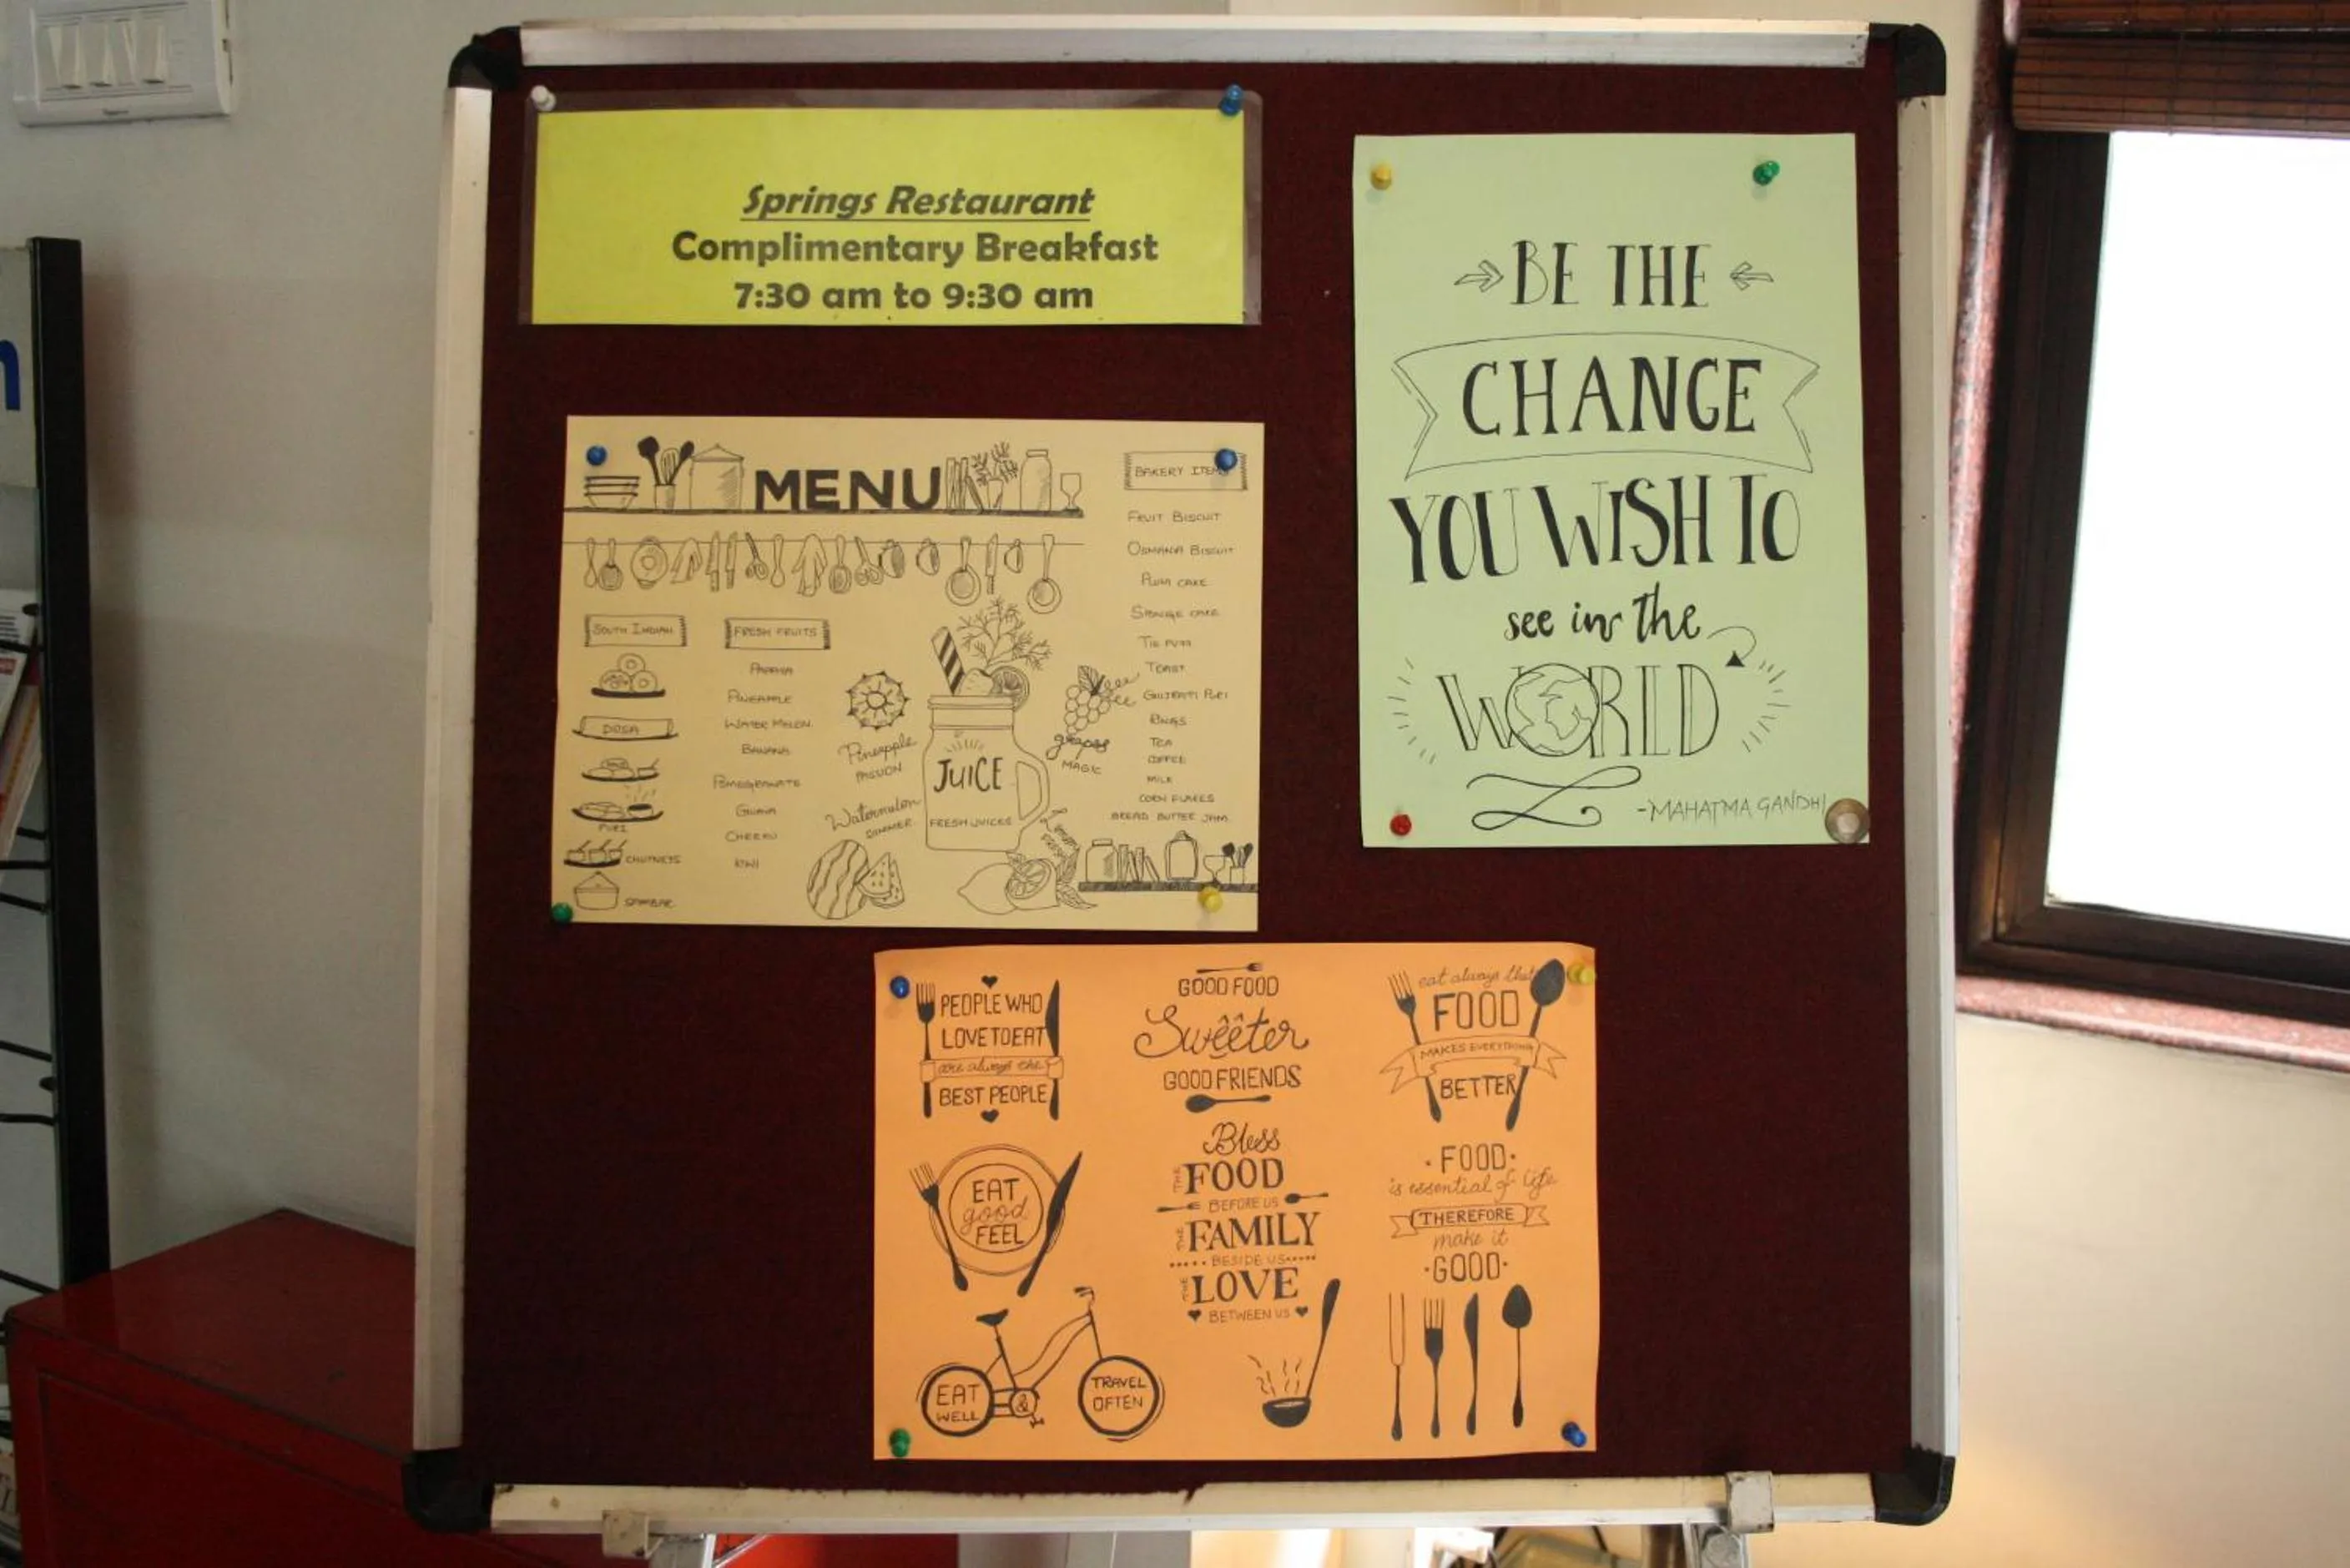 Springs Restaurant
Complimentary Breakfast
7:30 am to 9:30 am
BE THE
CHANGE
YOU WISH TO
see in the
WORLD
-MAHATMA GANDHI
MENU
SOUTH INDIAN
DOSA
PURI
CHUTNEYS
SAMBAR
FRESH FRUITS
PAPAYA
PINEAPPLE
WATER MELON
BANANA
POMEGRANATE
GUAVA
CHERRY
KIWI
Pineapple
PASSION
Watermelon
SUMMER
JUICE
FRESH JUICES
grapes
MAGIC
BAKERY ITEMS
FRUIT BISCUIT
OSMANIA BISCUIT
PLUM CAKE
SPONGE CAKE
TOAST
GUJRATI PURI
RINGS
TEA
COFFEE
MILK
CORN FLAKES
BREAD BUTTER JAM
PEOPLE WHO
LOVE TO EAT
are always the
BEST PEOPLE
GOOD FOOD
Sweeter
GOOD FRIENDS
eat always that
FOOD
MAKES EVERYTHING
BETTER
EAT
good
FEEL
Bless
THE FOOD
BEFORE US
THE FAMILY
BESIDE US
THE LOVE
BETWEEN US
·FOOD·
is essential of life
THEREFORE
make it
·GOOD·
EAT
WELL
&
TRAVEL
OFTEN